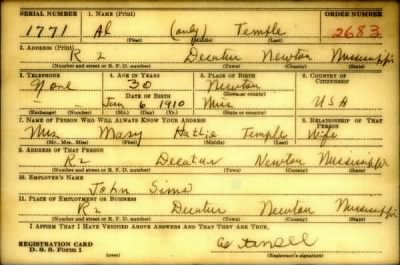 SERIAL NUMBER 1. NAME (Print) ORDER NUMBER
1771 Al (only) Temple 2683
(First) (Middle) (Last)
2. ADDRESS (Print)
R 2 Decatur Newton Mississippi
(Number and street or R. F. D. number) (Town) (County) (State)
3. TELEPHONE 4. AGE IN YEARS 5. PLACE OF BIRTH 6. COUNTRY OF CITIZENSHIP
None 30 Newton
DATE OF BIRTH (Town or county)
Jan 6 1910 Miss USA
(Exchange) (Number) (Mo.) (Day) (Yr.) (State or country)
7. NAME OF PERSON WHO WILL ALWAYS KNOW YOUR ADDRESS 8. RELATIONSHIP OF THAT PERSON
Mrs Mary Hattie Temple Wife
(Mr., Mrs., Miss) (First) (Middle) (Last)
9. ADDRESS OF THAT PERSON
R 2 Decatur Newton Mississippi
(Number and street or R. F. D. number) (Town) (County) (State)
10. EMPLOYER'S NAME
John Sims
11. PLACE OF EMPLOYMENT OR BUSINESS
R 2 Decatur Newton Mississippi
(Number and street or R. F. D. number) (Town) (County) (State)
I AFFIRM THAT I HAVE VERIFIED ABOVE ANSWERS AND THAT THEY ARE TRUE.
REGISTRATION CARD
D. S. S. Form 1 (over) (Registrant's signature)